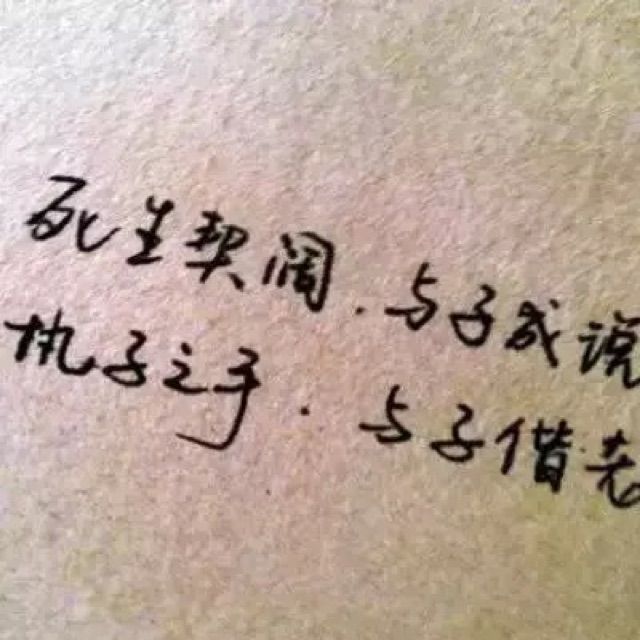 死生契阔·与子成说
执子之手·与子偕老